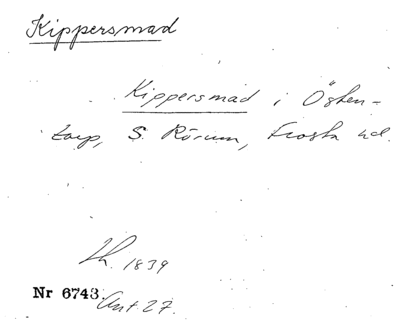 Kippersmad
Kippersmad i Östen-
torp, S. Rörum, Frosta hd.
Lh. 1839
Nr 6743 Ant. 27.